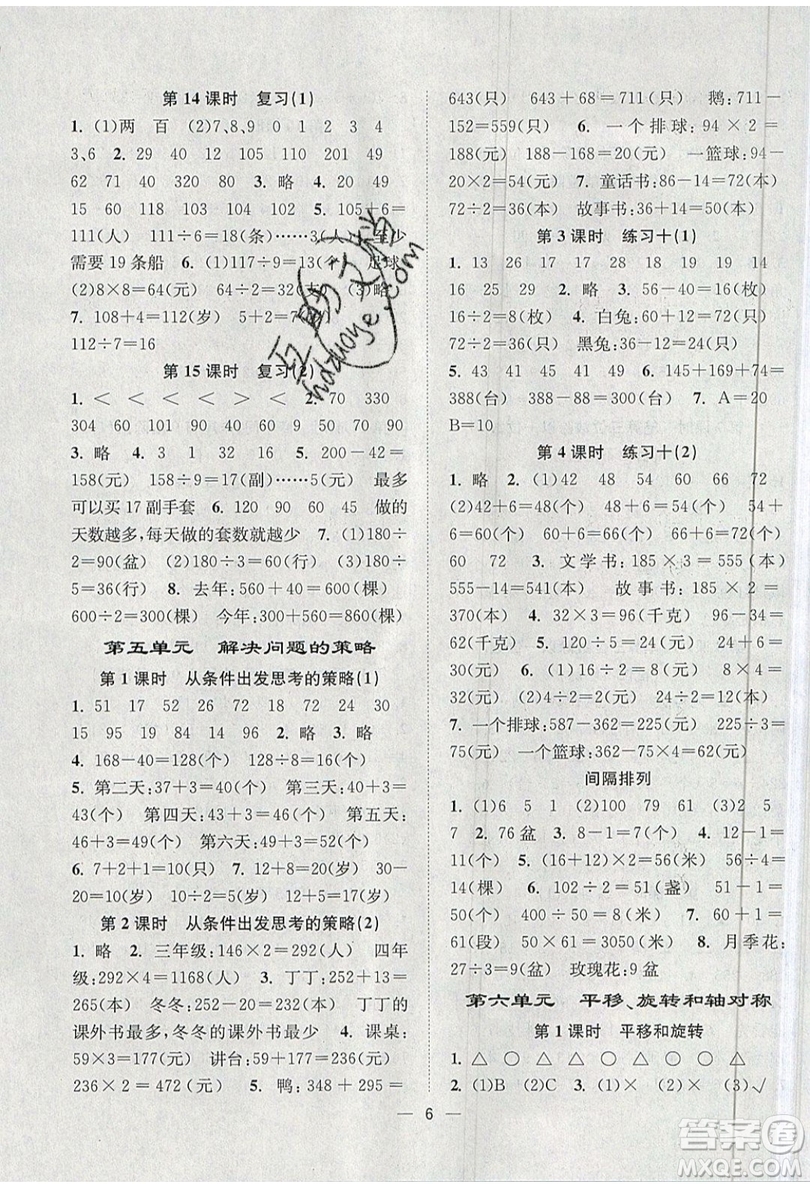 第 14 课时　复习(1)
1. (1)两　百　(2)7、8、9　0　1　2　3　4
3、6　2. 29　40　110　105　110　201　49
62　71　40　320　3. 略　4. 20　51　49
15　60　118　103　104　102　5. 105+6=
111(人)　111÷6=18(条)……3(人)　至少
需要 19 条船　6. (1)96÷3=32(个)　足球
(2)8×2=16(元)　16÷4=4(倍)　(3)略
7. 108+4=112(岁)　5+2=7(倍)
112÷7=16
第 15 课时　复习(2)
1. <　<　<　<　>　<　2. 70　330
50　302　430　104　100　60　70　90
3. 略　4. 3　3　1　1　5. 200-42=
158(元)　158÷9=17(副)……5(元)　最多
可以买 17 副手套　6. 120　90　60　45　做的
天数越多，每天做的套数就越少　7. (1)180÷
2=90(盆)　(2)180÷3=60(行)　(3)180÷
6=30(行)　8. 去年：560+40=600(棵)
600÷2=300(棵)　今年：300+560=860(棵)
第五单元　解决问题的策略
第 1 课时　从条件出发思考的策略(1)
1. 51　17　52　26　18　72　24　30
15　95　19　84　14　96　2. 略　3. 略
4. 168-40=128(个)　128÷8=16(个)
5. 第二天：37+3=40(个)　第三天：40+3=
43(个)　第四天：43+3=46(个)　第五天：
46+3=49(个)　第六天：49+3=52(个)
6. 7+2+1=10(只)　7. 30÷3=10(岁)　30-
20=10(岁)　10+5=15(岁)
第 2 课时　从条件出发思考的策略(2)
1. 略　2. 三年级：146×2=292(人)　四年
级：292×4=1168(人)　3. 丁丁：252+13=
265(本)　冬冬：252-10=242(本)　丁丁的
课外书最多，冬冬的课外书最少　4. 课桌：
59×3=177(元)　讲台：177+59=236(元)
236×2=472(元)　5. 鸭：348+295=
643(只)　643+68=711(只)　鹅：711-
152=559(只)　6. 一个排球：94×2=
188(元)　188-168=20(元)　一篮球：94-
20×2=54(元)　7. 童话书：86-14=72(本)
72÷2=36(本)　故事书：36+14=50(本)
第 3 课时　练习十(1)
1. 13　26　28　17　34　38　15　45　14
16　25　29　2. 略　3. 56-40=16(枚)
16÷2=8(枚)　4. 白兔：36×2=72(只)
黑兔：36+72=108(只)
5. 43　41　49　46　6. 145+169+74=
388(台)　388-88=300(台)　7. A=20
B=10
第 4 课时　练习十(2)
1. 略　2. (1)42　48　54　60　66　72
(2)42+6=48(个)　48+6=54(个)　54+
6=60(个)　60+6=66(个)　66+6=72(个)
60　72　3. 文学书：185×3=555(本)
555-14=541(本)　故事书：185×2=
370(本)　4. 32×3=96(千克)　96-34=
62(千克)　5. (1)24÷3=8(元)　8×9=
72(元)　(2)150÷3=50(元)　50-20=
30(元)　6. 81÷9=9(行)　9-3=6(行)
7. 一个排球：587-362=225(元)　225÷3=
75(元)　一个篮球：362-225=137(元)
间隔排列
1. (1)6　5　(2)100　79　61　(3)2　5
7　2. 76 盆　3. 8-1=7(个)　4. 12-1=
11(个)　5. 56÷7=8(米)　6. 15-1=
14(棵)　6. 102÷2=51(盏)　7. (1)450-
50=400(个)　400÷50=8(个)　(2)62-1=
61(段)　61×50=3050(米)　8. 月季花：
27÷3=9(盆)　玫瑰花：9 盆
第六单元　平移、旋转和轴对称
第 1 课时　平移和旋转
1. △　○　○　△　△　○　○　△
2. (1)B　(2)C　3. (1)×　(2)×　(3)√
6
互助文档
hdzuoye.com
答案圈
MXQE.COM